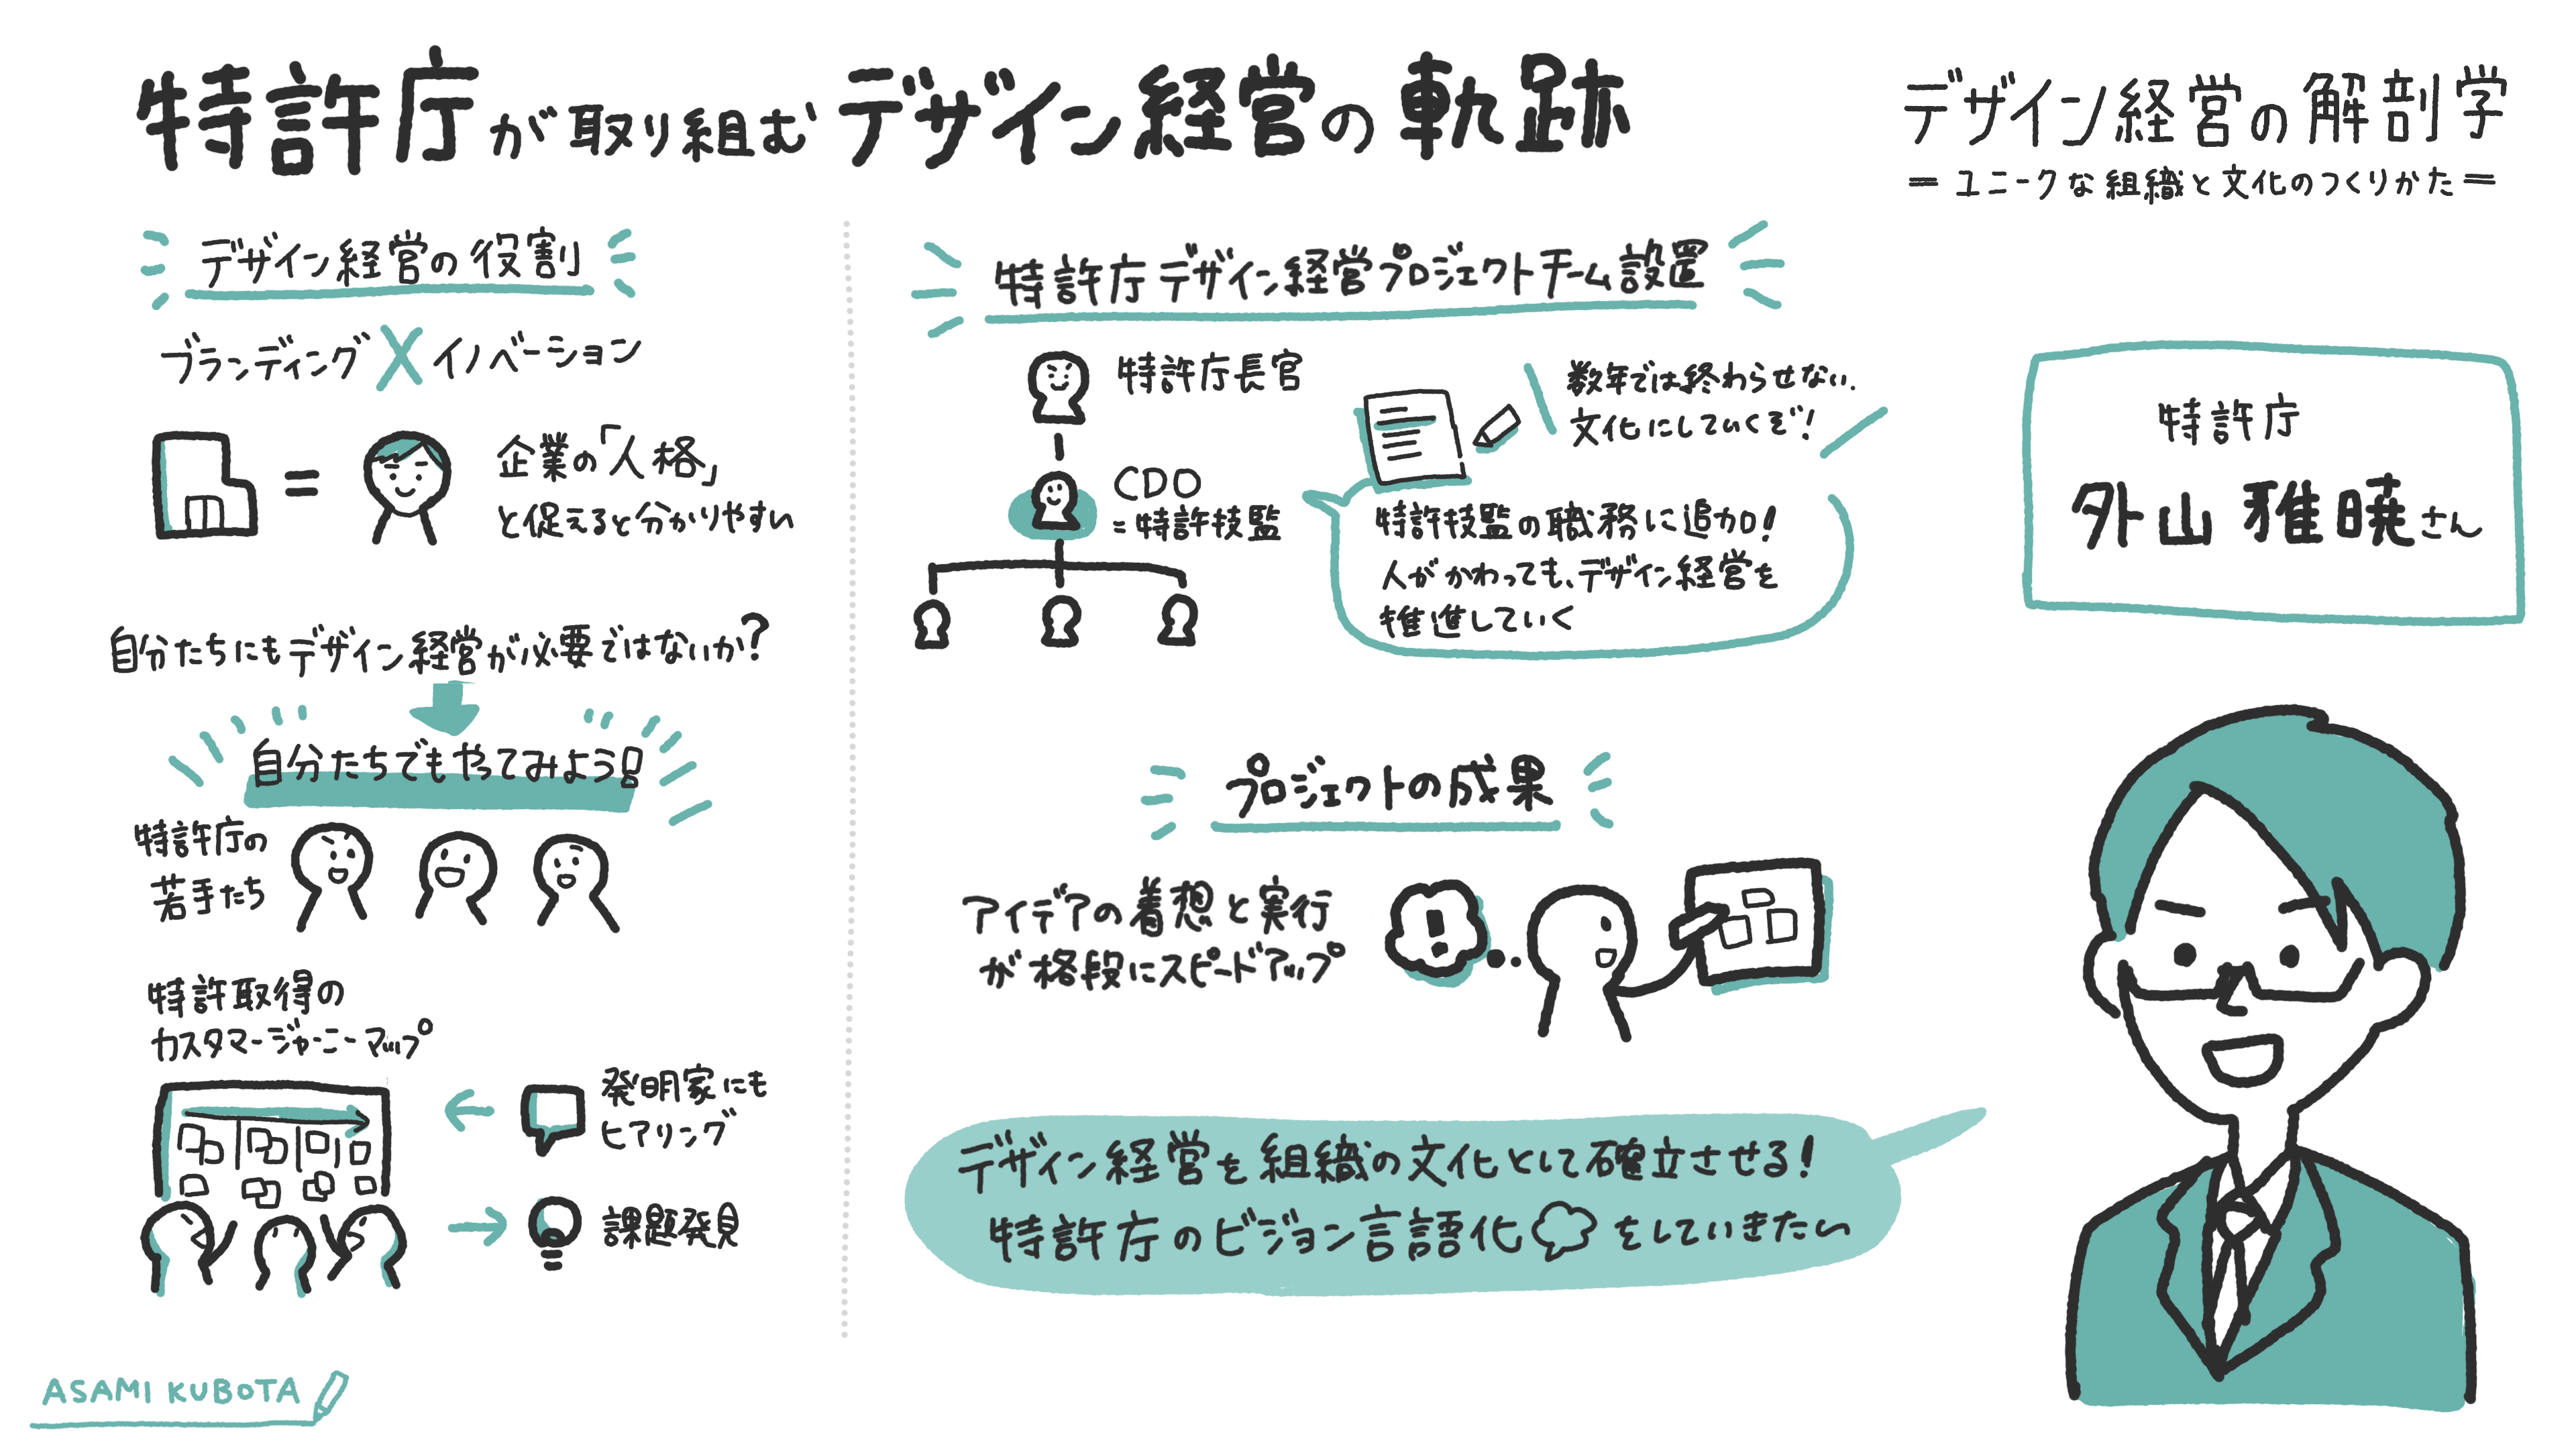 特許庁が取り組むデザイン経営の軌跡
デザイン経営の解剖学
= ユニークな組織と文化のつくりかた =
デザイン経営の役割
ブランディング X イノベーション
=
企業の「人格」
と促えると分かりやすい
自分たちにもデザイン経営が必要ではないか?
自分たちでもやってみよう!
特許庁の
若手たち
特許取得の
カスタマージャーニーマップ
発明家にも
ヒアリング
課題発見
特許庁デザイン経営プロジェクトチーム設置
特許庁長官
CDO
=特許技監
数年では終わらせない.
文化にしていくぞ!
特許技監の職務に追加!
人がかわっても、デザイン経営を
推進していく
プロジェクトの成果
アイデアの着想と実行
が格段にスピードアップ
!
デザイン経営を組織の文化として確立させる!
特許庁のビジョン言語化をしていきたい
特許庁
外山 雅暁さん
ASAMI KUBOTA